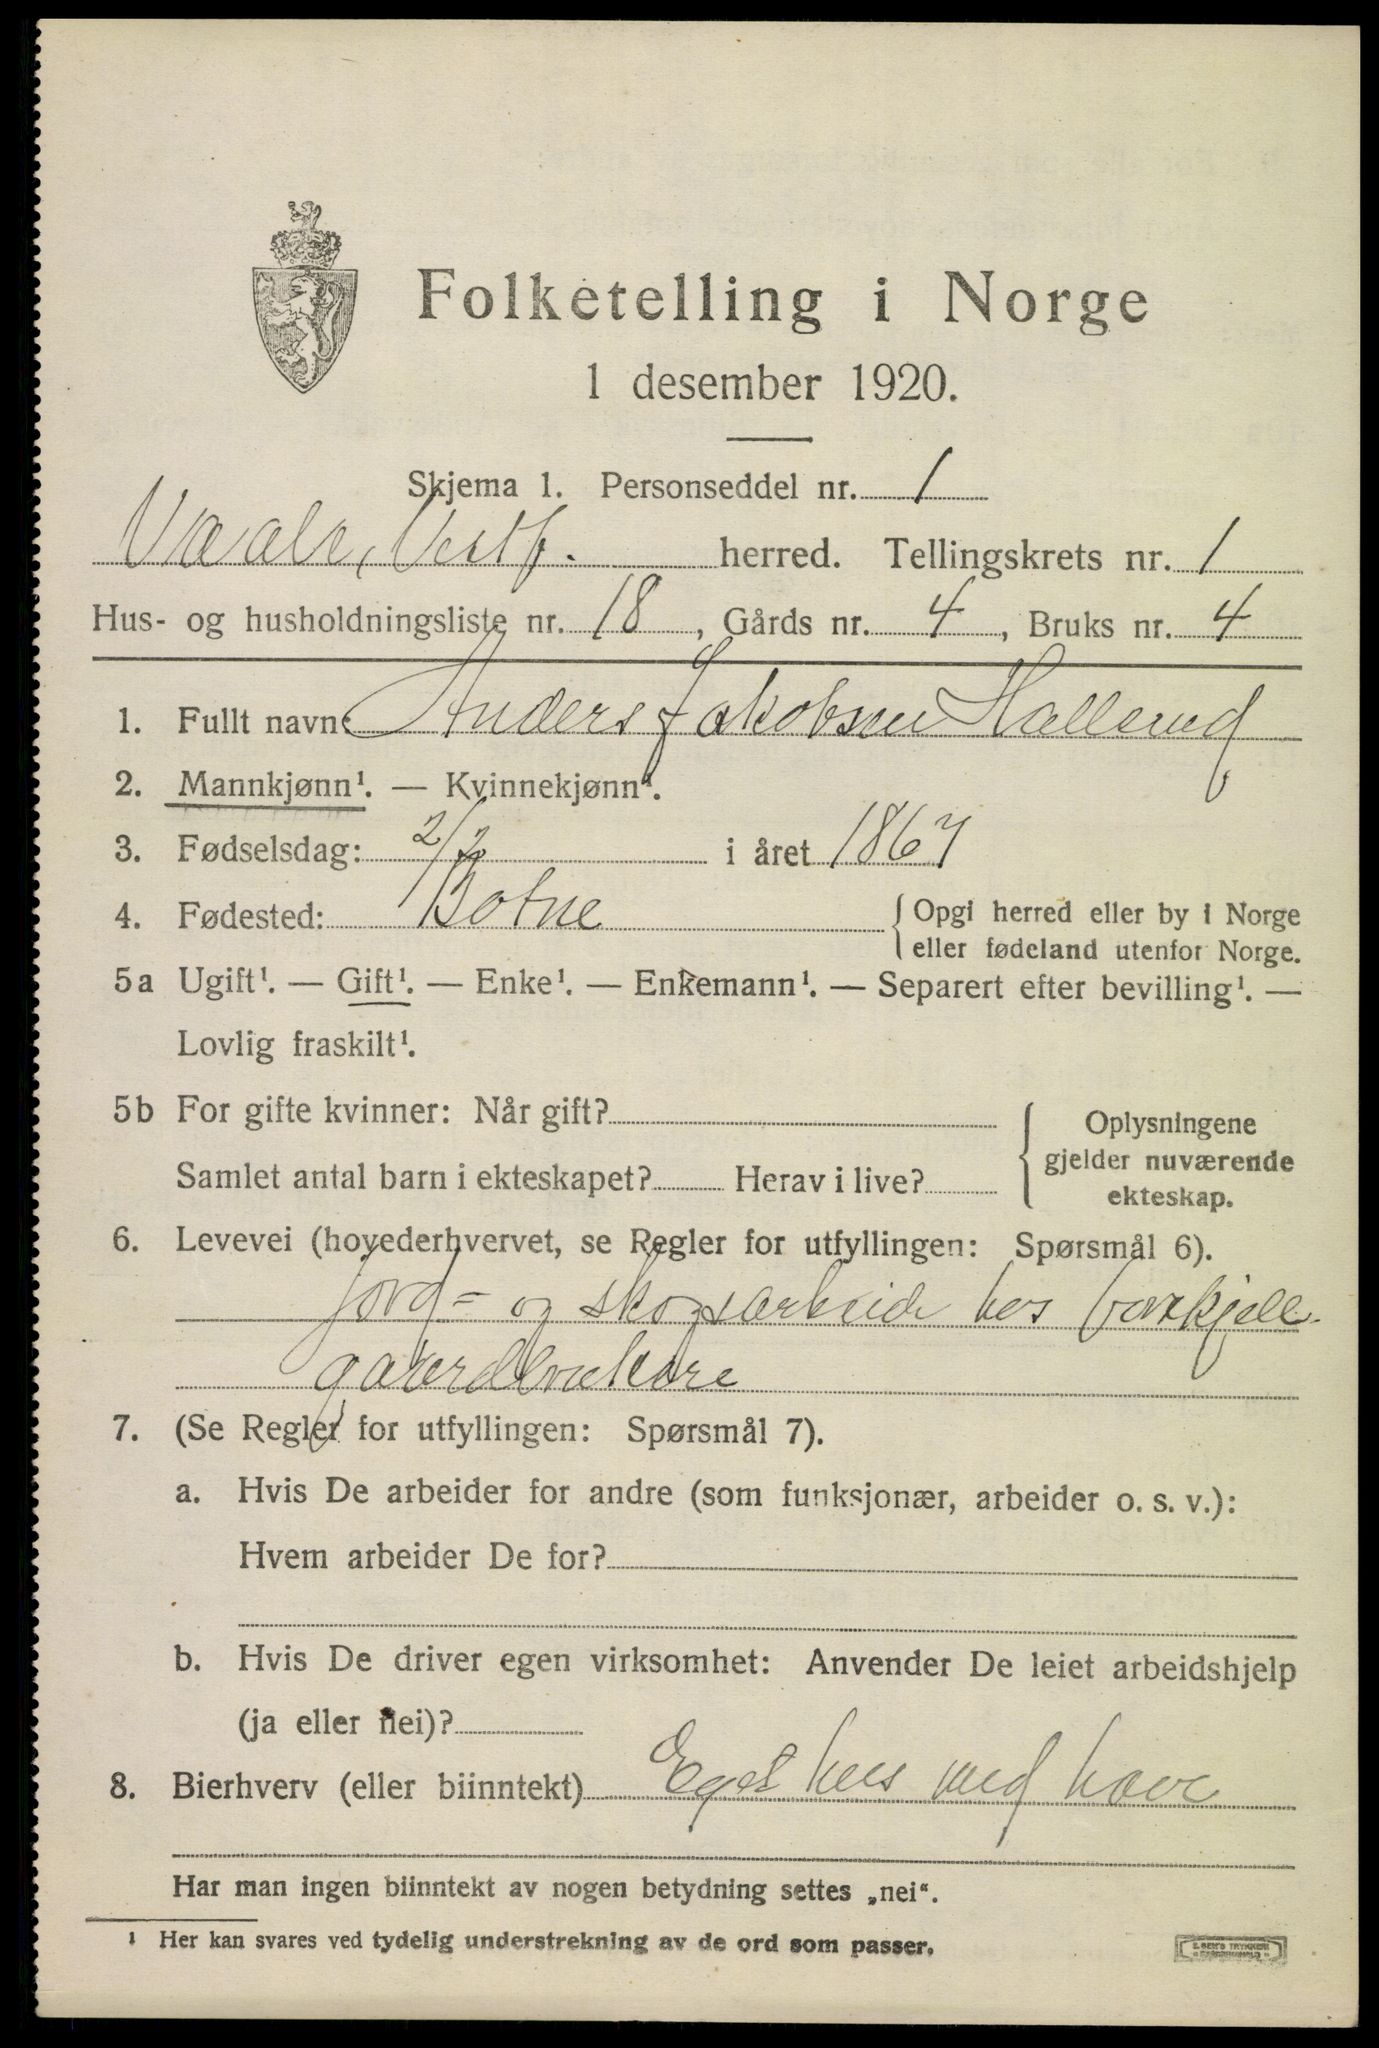 Folketelling i Norge
1 desember 1920.
Skjema 1. Personseddel nr. 1
Vaale, Vestf. herred. Tellingskrets nr. 1
Hus- og husholdningsliste nr. 18, Gårds nr. 4, Bruks nr. 4
1. Fullt navn: Anders Jakobsen Hallerud
2. Mannkjønn¹. — Kvinnekjønn¹.
3. Fødselsdag: 2/2 i året 1867
4. Fødested: Botne { Opgi herred eller by i Norge
eller fødeland utenfor Norge.
5a Ugift¹. — Gift¹. — Enke¹. — Enkemann¹. — Separert efter bevilling¹. —
Lovlig fraskilt¹.
5b For gifte kvinner: Når gift? { Oplysningene
gjelder nuværende
ekteskap.
Samlet antal barn i ekteskapet? Herav i live?
6. Levevei (hovederhvervet, se Regler for utfyllingen: Spørsmål 6).
jord- og skogsarbeide hos
7. (Se Regler for utfyllingen: Spørsmål 7).
a. Hvis De arbeider for andre (som funksjonær, arbeider o. s. v.):
Hvem arbeider De for?
b. Hvis De driver egen virksomhet: Anvender De leiet arbeidshjelp
(ja eller nei)?
8. Bierhverv (eller biinntekt) Eget hus med have
Har man ingen biinntekt av nogen betydning settes „nei“.
¹ Her kan svares ved tydelig understrekning av de ord som passer.